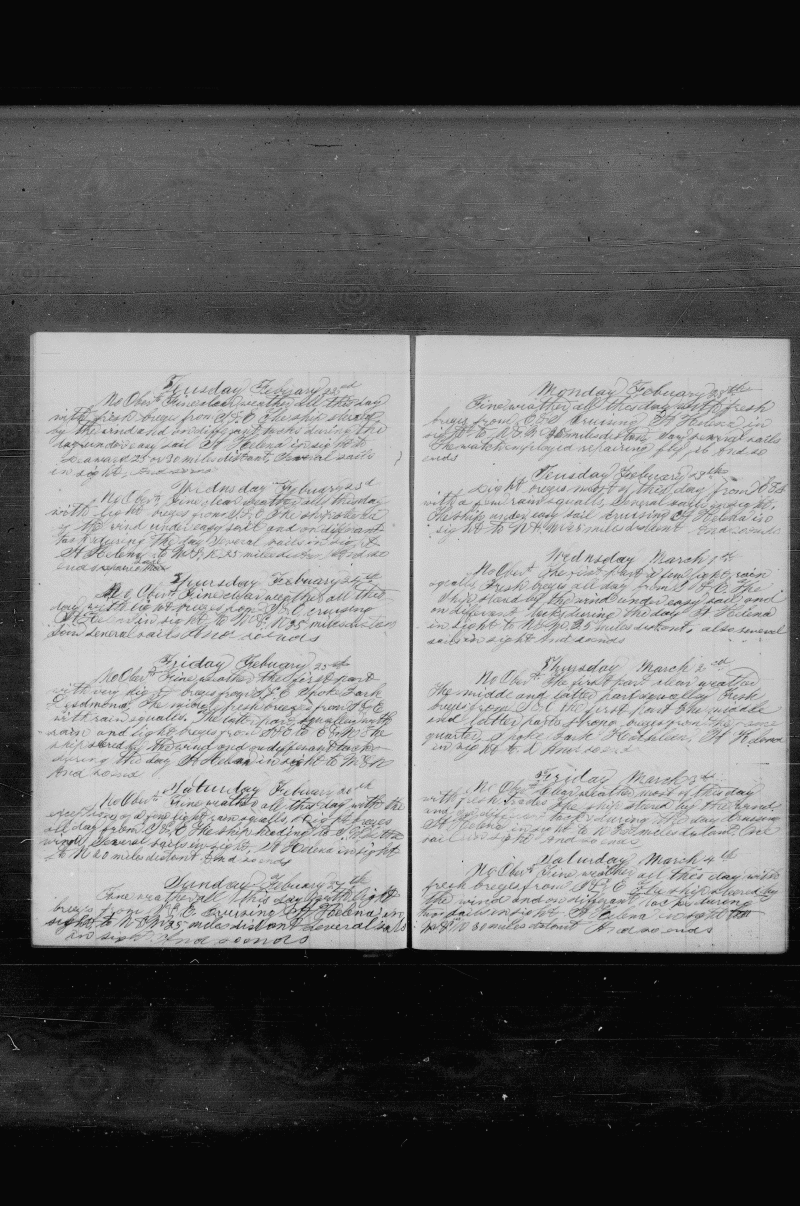 Tuesday February 22nd
No Obvn Fine clear weather all this day
with fresh brezes from S.E. The ship steard
by the wind and on different tacks during the
day under easy sail St Helena in sight to
Leeward 25 or 30 miles distant, Several sails
in sight. And so ends
Wednsday February 23d
No Obvn Fine clear weather all this day
with light brezes from S.E. The ship steard
by the wind under easy sail and on differant
tacks during the day Several sails in sight
St Helena to N.W. 25 miles distan And so
ends
Thursday February 24th
No Obvn Fine clear weather all this
day with light brezes from S.E. cruising
St Helena in sight to N.W. 25 miles distan
Som several sails And so ends
Friday February 25th
No Obvn Fine weather the first part
with very light brezes from S.E. Spoke Bark
The middle fresh brezes from S.E.
with rain squalls. The latter part squally with
rain and light brezes from The
ship steard by the wind and on differant tacks
during the day St Helena in sight to
And so ends
Saturday February 26th
No Obvn Fine weather all this day with the
exception of a few light rain squalls. Light brezes
all day from S.E. The ship heading to by the
wind. Several sails in sight, St Helena in sight
to N 20 miles distant And so ends
Sunday February 27th
Fine weather all this day with light
brezes from S.E. Cruising St Helena in
sight to N.W. 25 miles distant Several sails
in sight And so ends
Monday February 28th
Fine weather all this day with fresh
brezes from S.E. Cruising St Helena in
sight to miles distan Saw several sails
The watch employed repairing fly jib And so
ends
Tuesday February 29th
Light brezes most of this day from
with a few rain squalls, Several sails in sight,
The ship under easy sail cruising St Helena in
sight to N.W. 25 miles distant And so ends
Wednsday March 1st
No Obvn The first part a few light rain
squalls Fresh brezes all day from S.E. The
Ship steard by the wind under easy sail and
on differant tacks during the day St Helena
in sight to 25 miles distant, also several
sails in sight And so ends
Thursday March 2nd
No Obvn The first part clear weather
The middle and latter part squally Fresh
brezes from S.E. the first part The middle
and latter parts strong brezes from the same
quarter, Spoke Bark St Helena
in sight to And so ends
Friday March 3rd
No Obvn Clear weather most of this day
with fresh trades The ship steard by the wind
and on differant tacks during the day Cruising
St Helena in sight to miles distant One
sail in sight And so ends
Saturday March 4th
No Obvn Fine weather all this day with
fresh brezes from S.E. The ship steard by
the wind and on differant tacks during
sails in sight St Helena in sight
30 miles distant And so ends